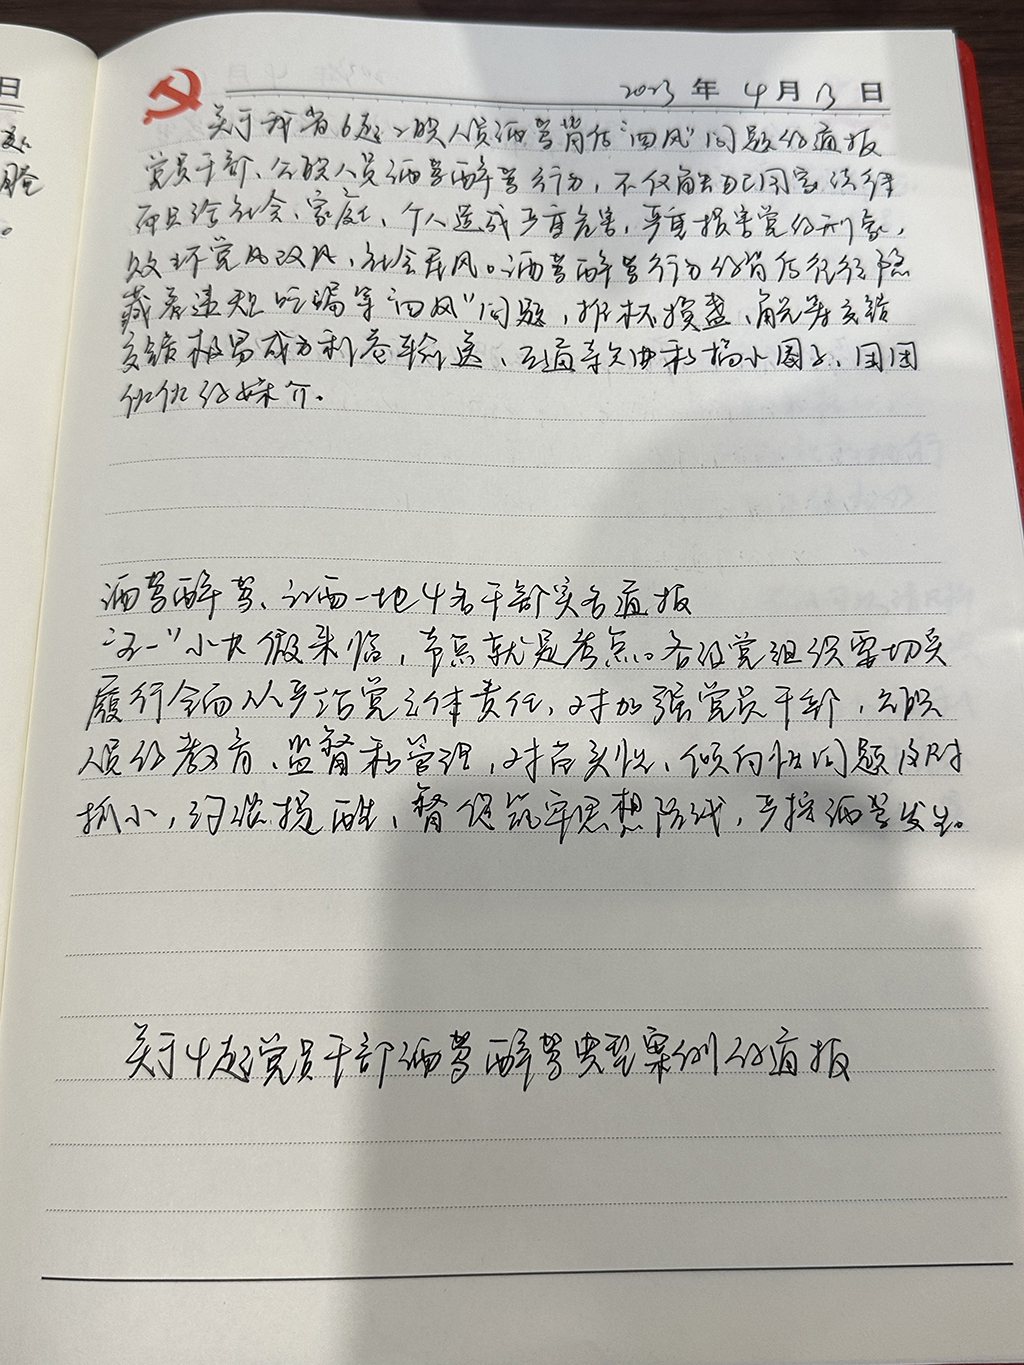 日
腌
。
2023 年 4 月 13 日
关于我省6起公职人员酒驾背后“四风”问题的通报
党员干部、公职人员酒驾醉驾行为，不仅触犯国家法律
而且给社会、家庭、个人造成严重危害，严重损害党的形象，
败坏党风政风、社会民风。酒驾醉驾行为的背后往往隐
藏着违规吃喝等“四风”问题，推杯换盏、觥筹交错
交错极易成为利益输送、互通款曲和搞小圈子、团团
伙伙的媒介。
酒驾醉驾、江西一地4名干部实名通报
“五一”小长假来临，节点就是考点。各级党组织要切实
履行全面从严治党主体责任，对加强党员干部，公职
人员的教育、监督和管理，对苗头性、倾向性问题及时
抓小，约谈提醒，督促筑牢思想防线，严控酒驾发生。
关于4起党员干部酒驾醉驾典型案例的通报